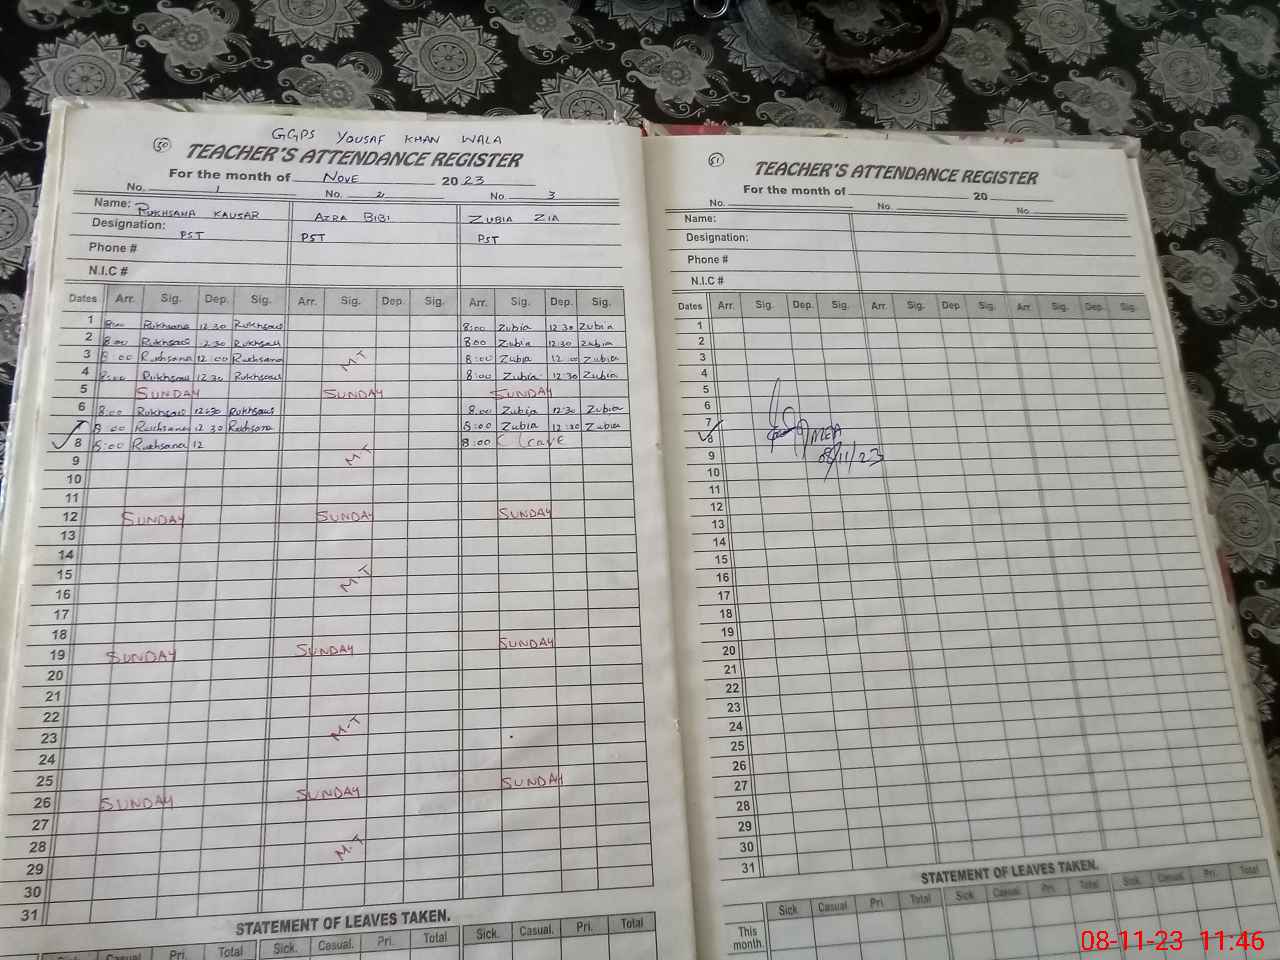 GGPS YOUSAF KHAN WALA
50
TEACHER'S ATTENDANCE REGISTER
For the month of NOVE 2023
No. 1 No. 2 No. 3
Name: RUKHSANA KAUSAR AZRA BIBI ZUBIA ZIA
Designation: PST PST PST
Phone #
N.I.C #
Dates Arr. Sig. Dep. Sig. Arr. Sig. Dep. Sig. Arr. Sig. Dep. Sig.
1 8:00 Rukhsana 12 30 8:00 Zubia 12 30 Zubia
2 8:00 8:00 Zubia 12:30 Zubia
3 8:00 Rukhsana 12:00 Rukhsana M-T 8:00 Zubia 12:00 Zubia
4 8:00 12:30 8:00 Zubia 12:30 Zubia
5 SUNDAY SUNDAY SUNDAY
6 8:00 12:30 8:00 Zubia 12:30 Zubia
7 8:00 Rukhsana 12 30 Rukhsana 8:00 Zubia 12:30 Zubia
8 8:00 Rukhsana 12 8:00
9 M-T
10
11
12 SUNDAY SUNDAY SUNDAY
13
14
15 M-T
16
17
18
19 SUNDAY SUNDAY SUNDAY
20
21
22
23 M-T
24
25
26 SUNDAY SUNDAY SUNDAY
27
28 M-T
29
30
31
STATEMENT OF LEAVES TAKEN.
Sick. Casual. Pri. Total Sick. Casual. Pri. Total Sick. Casual. Pri. Total
51
TEACHER'S ATTENDANCE REGISTER
For the month of 20
No. No. No.
Name:
Designation:
Phone #
N.I.C #
Dates Arr. Sig. Dep. Sig. Arr. Sig. Dep Sig. Arr. Sig. Dep. Sig.
1
2
3
4
5
6
7
8 MEA
9 08/11/23
10
11
12
13
14
15
16
17
18
19
20
21
22
23
24
25
26
27
28
29
30
31
STATEMENT OF LEAVES TAKEN.
Sick Casual Pri. Total Sick Casual. Pri. Total Sick. Casual. Pri. Total
This month.
08-11-23 11:46